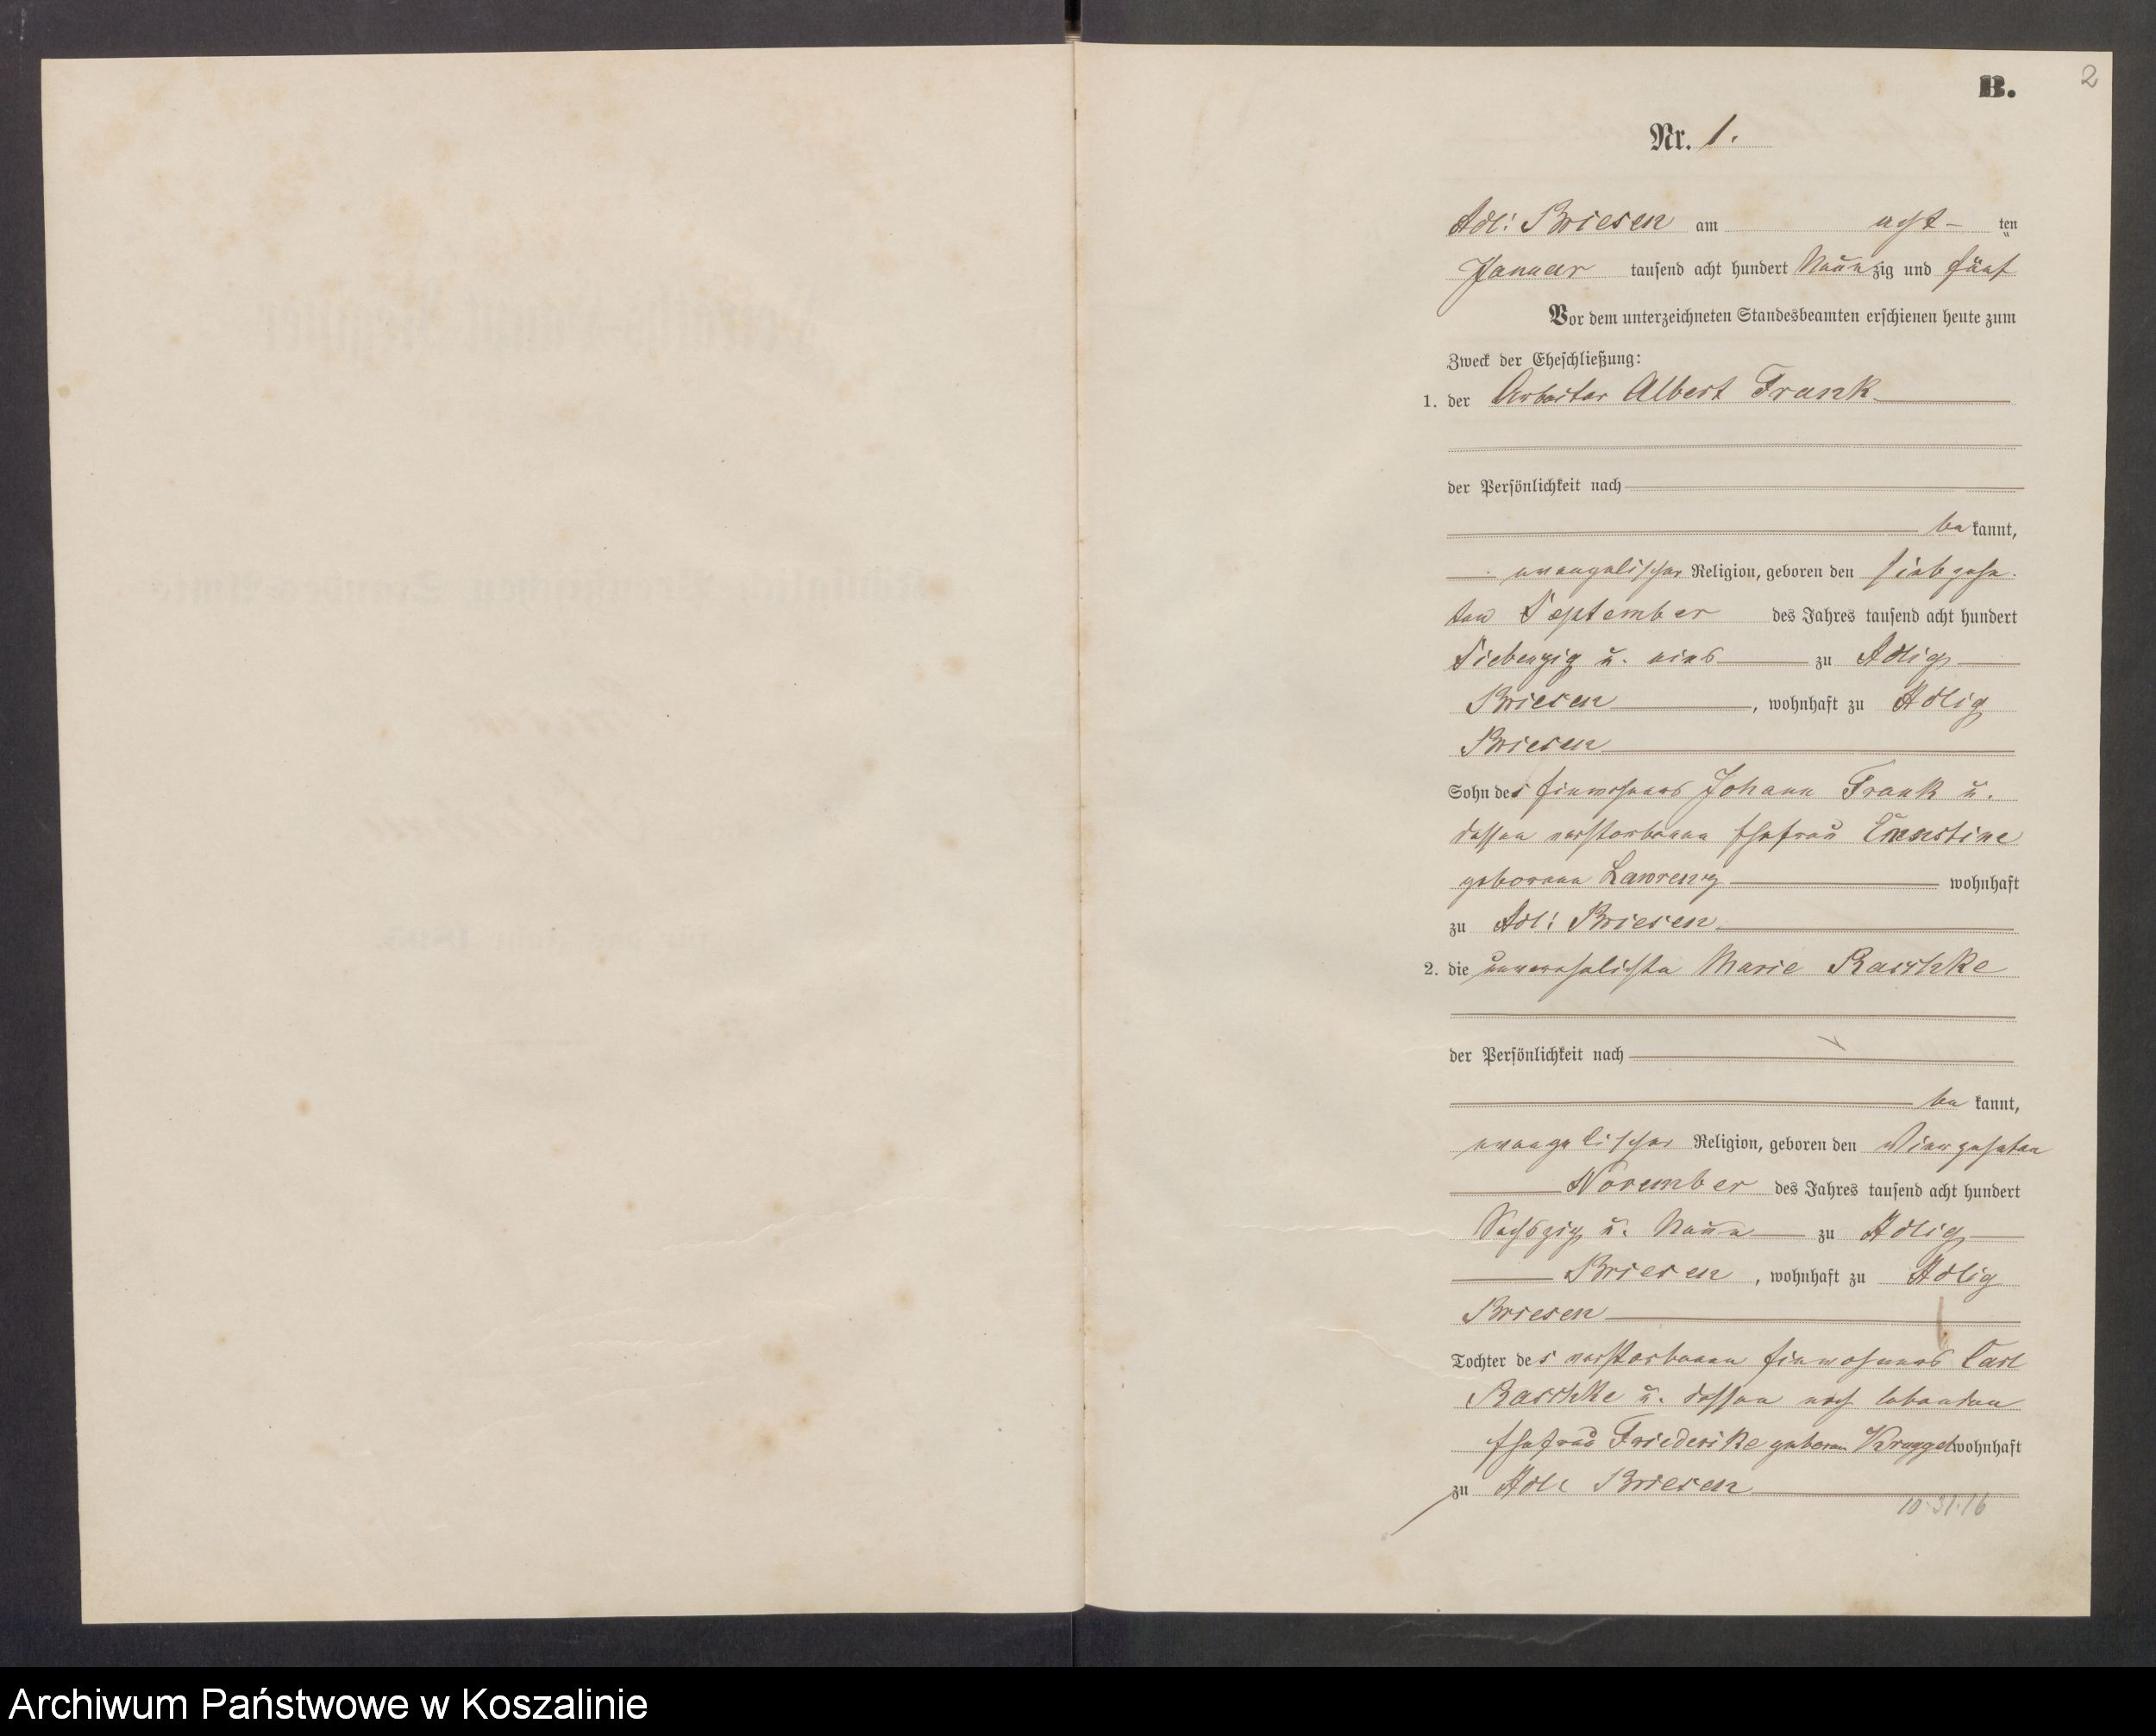 B.
2
Nr. 1.
Adl: Briesen am acht- ten
Januar tausend acht hundert Neunzig und fünf
Vor dem unterzeichneten Standesbeamten erschienen heute zum
Zweck der Eheschließung:
1. der Arbeiter Albert Frank
der Persönlichkeit nach
bekannt,
evangelischer Religion, geboren den siebzehn-
ten September des Jahres tausend acht hundert
Siebenzig u. eins zu Adlig
Briesen, wohnhaft zu Adlig
Briesen
Sohn des Einwohners Johann Frank u.
dessen verstorbenen Ehefrau Ernestine
geborenen Lawrenz wohnhaft
zu Adl: Briesen
2. die unverehelichte Marie Raschke
der Persönlichkeit nach
bekannt,
evangelischer Religion, geboren den Vierzehnten
November des Jahres tausend acht hundert
Sechszig u. Neun zu Adlig
Briesen, wohnhaft zu Adlig
Briesen
Tochter des verstorbenen Einwohners Carl
Raschke u. dessen noch lebenden
Ehefrau Friederike geboren Kruggel wohnhaft
zu Adl: Briesen
10.31.16
Archiwum Państwowe w Koszalinie